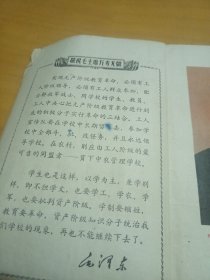 敬祝毛主席万寿无疆
实现无产阶级教育革命，必须有工
人阶级领导，必须有工人群众参加，配
合解放军战士，同学校的学生、教员、
工人中决心把无产阶级教育革命进行到
底的积极分子实行革命的三结合。工人
宣传队要在学校中长期留下去，参加学
校中全部斗、批、改任务，并且永远领
导学校。在农村，则应由工人阶级的最
可靠的同盟者——贫下中农管理学校。
学生也是这样，以学为主，兼学别
样，即不但学文，也要学工、学农、学
军，也要批判资产阶级。学制要缩短，
教育要革命，资产阶级知识分子统治我
们学校的现象，再也不能继续下去了。
毛泽东